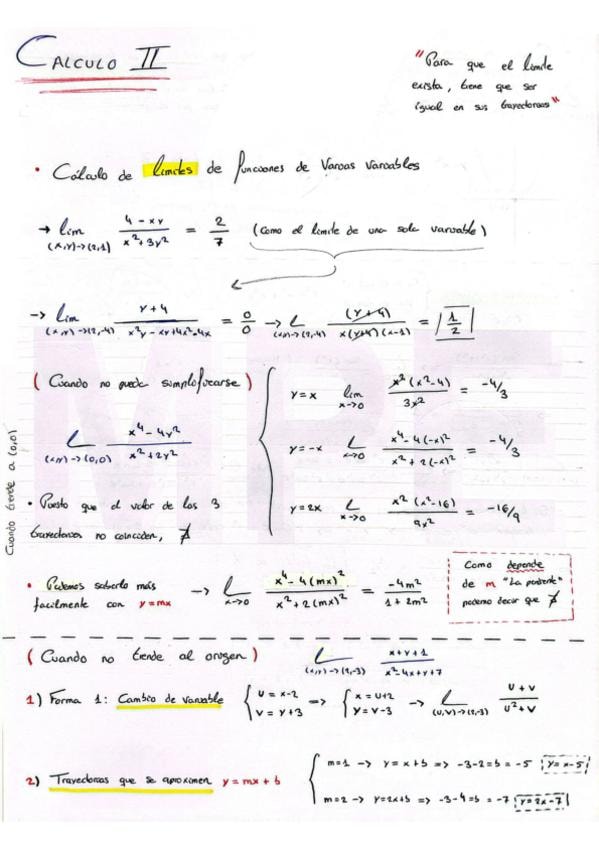 CALCULO II
"Para que el limite
exista, tiene que ser
igual en sus trayectorias"
• Cálculo de limites de funciones de Varias Variables
→ lim (x,y)→(2,1) 4-xy / x²+3y² = 2/7 (como el limite de una sola variable)
→ lim (x,y)→(2,-4) y+4 / x²y-xy+4x²-4x = 0/0 → L (x,y)→(2,-4) (y+4) / x(y+4)(x-1) = |1/2|
(Cuando no pueda simplificarse)
L (x,y)→(0,0) x⁴-4y² / x²+2y²
y=x lim x→0 x²(x²-4) / 3x² = -4/3
y=-x L x→0 x⁴-4(-x)² / x²+2(-x)² = -4/3
y=2x L x→0 x²(x²-16) / 9x² = -16/9
Cuando tiende a (0,0)
• Puesto que el valor de los 3
trayectorias no coinciden, ∄
• Podemos saberlo más
facilmente con y=mx
→ L x→0 x⁴-4(mx)² / x²+2(mx)² = -4m² / 1+2m²
Como depende
de m "La pendiente"
podemo decir que ∄
(Cuando no tiende al origen) L (x,y)→(2,-3) x+y+1 / x²-4x+y+7
1) Forma 1: Cambio de variable { u=x-2 v=y+3 => { x=u+2 y=v-3 → L (u,v)→(2,-3) u+v / u²+v
2) Trayectorias que se aproximen y=mx+b
m=1 → y=x+b => -3-2=b=-5 y=x-5
m=2 → y=2x+b => -3-4=b=-7 y=2x-7
MPE